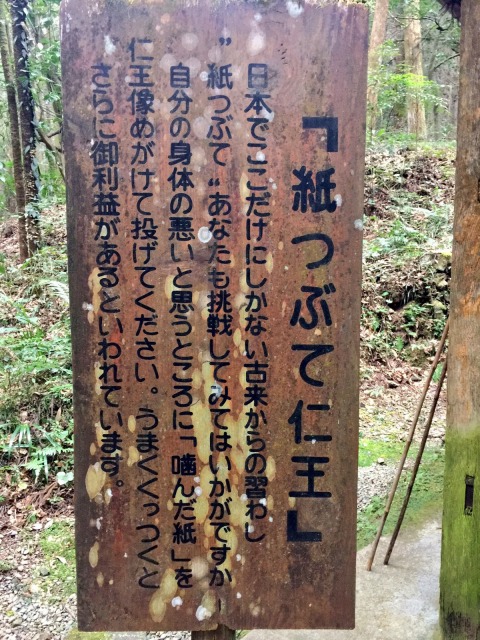 『紙つぶて仁王』
日本でここだけにしかない古来からの習わし
"紙つぶて"あなたも挑戦してみてはいかがですか
自分の身体の悪いと思うところに「噛んだ紙」を
仁王像めがけて投げてください。うまくくっつくと
さらに御利益があるといわれています。